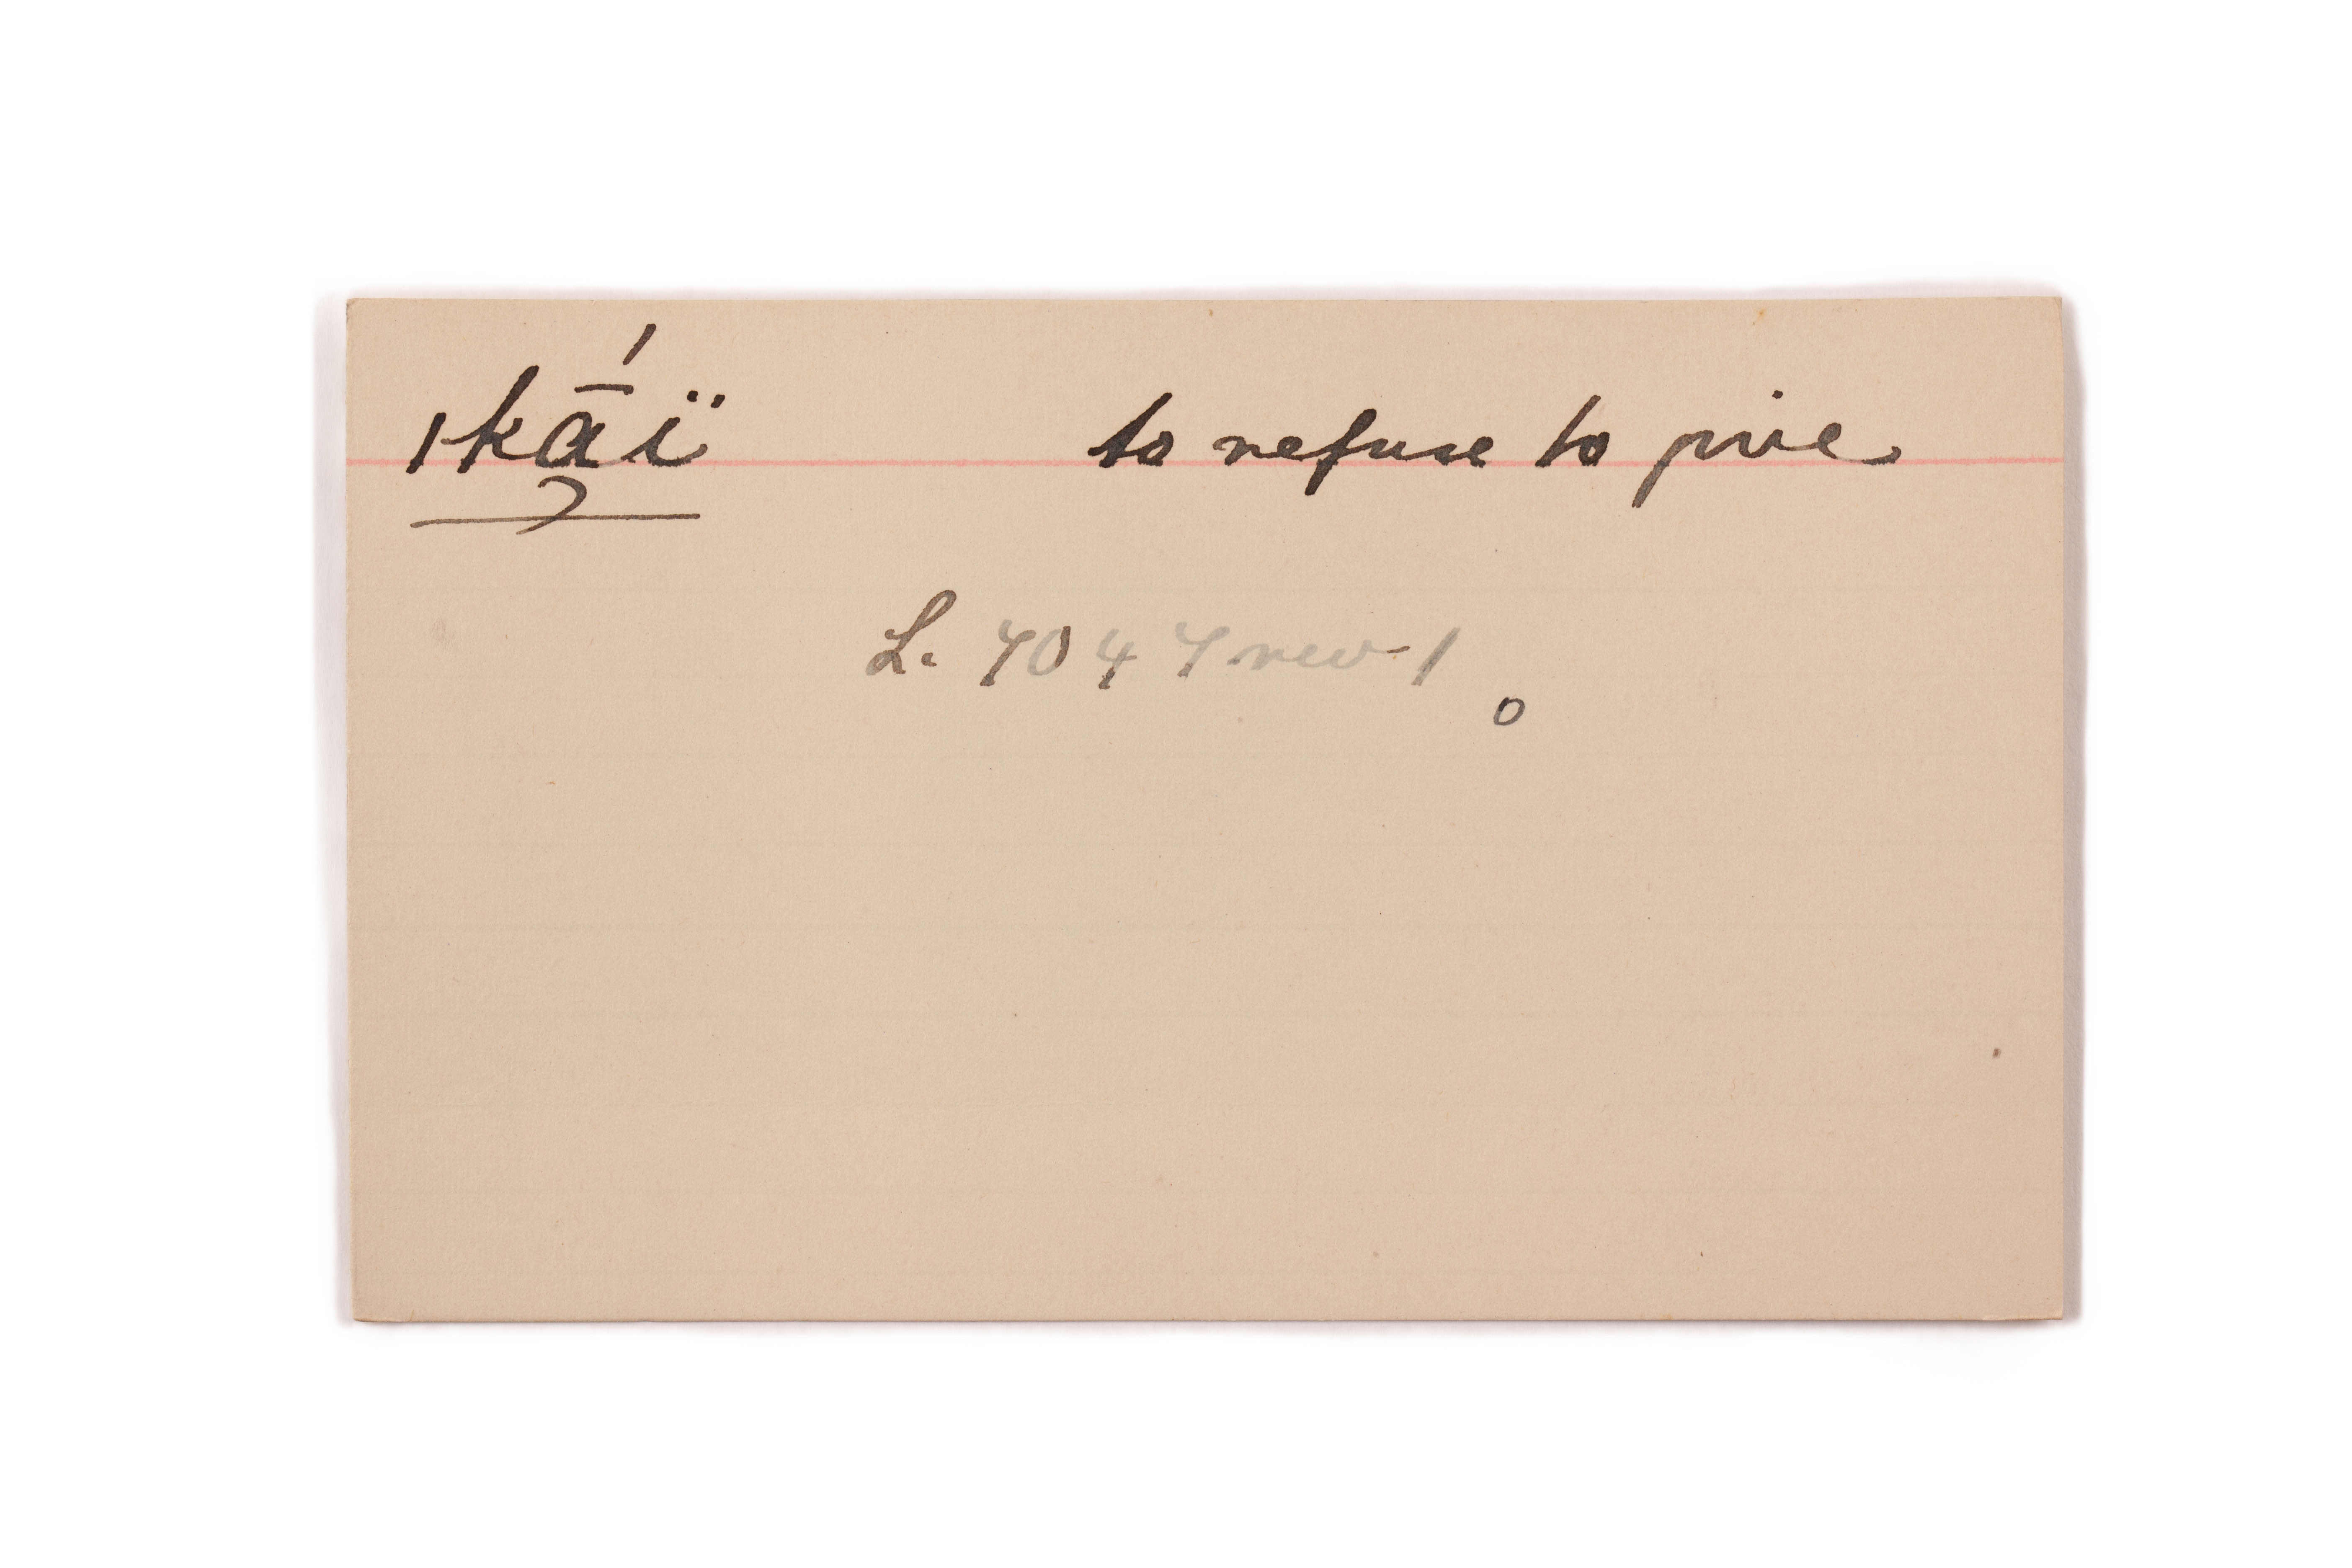 |kā́ï to refuse to give
L. 7047 rev-1
o